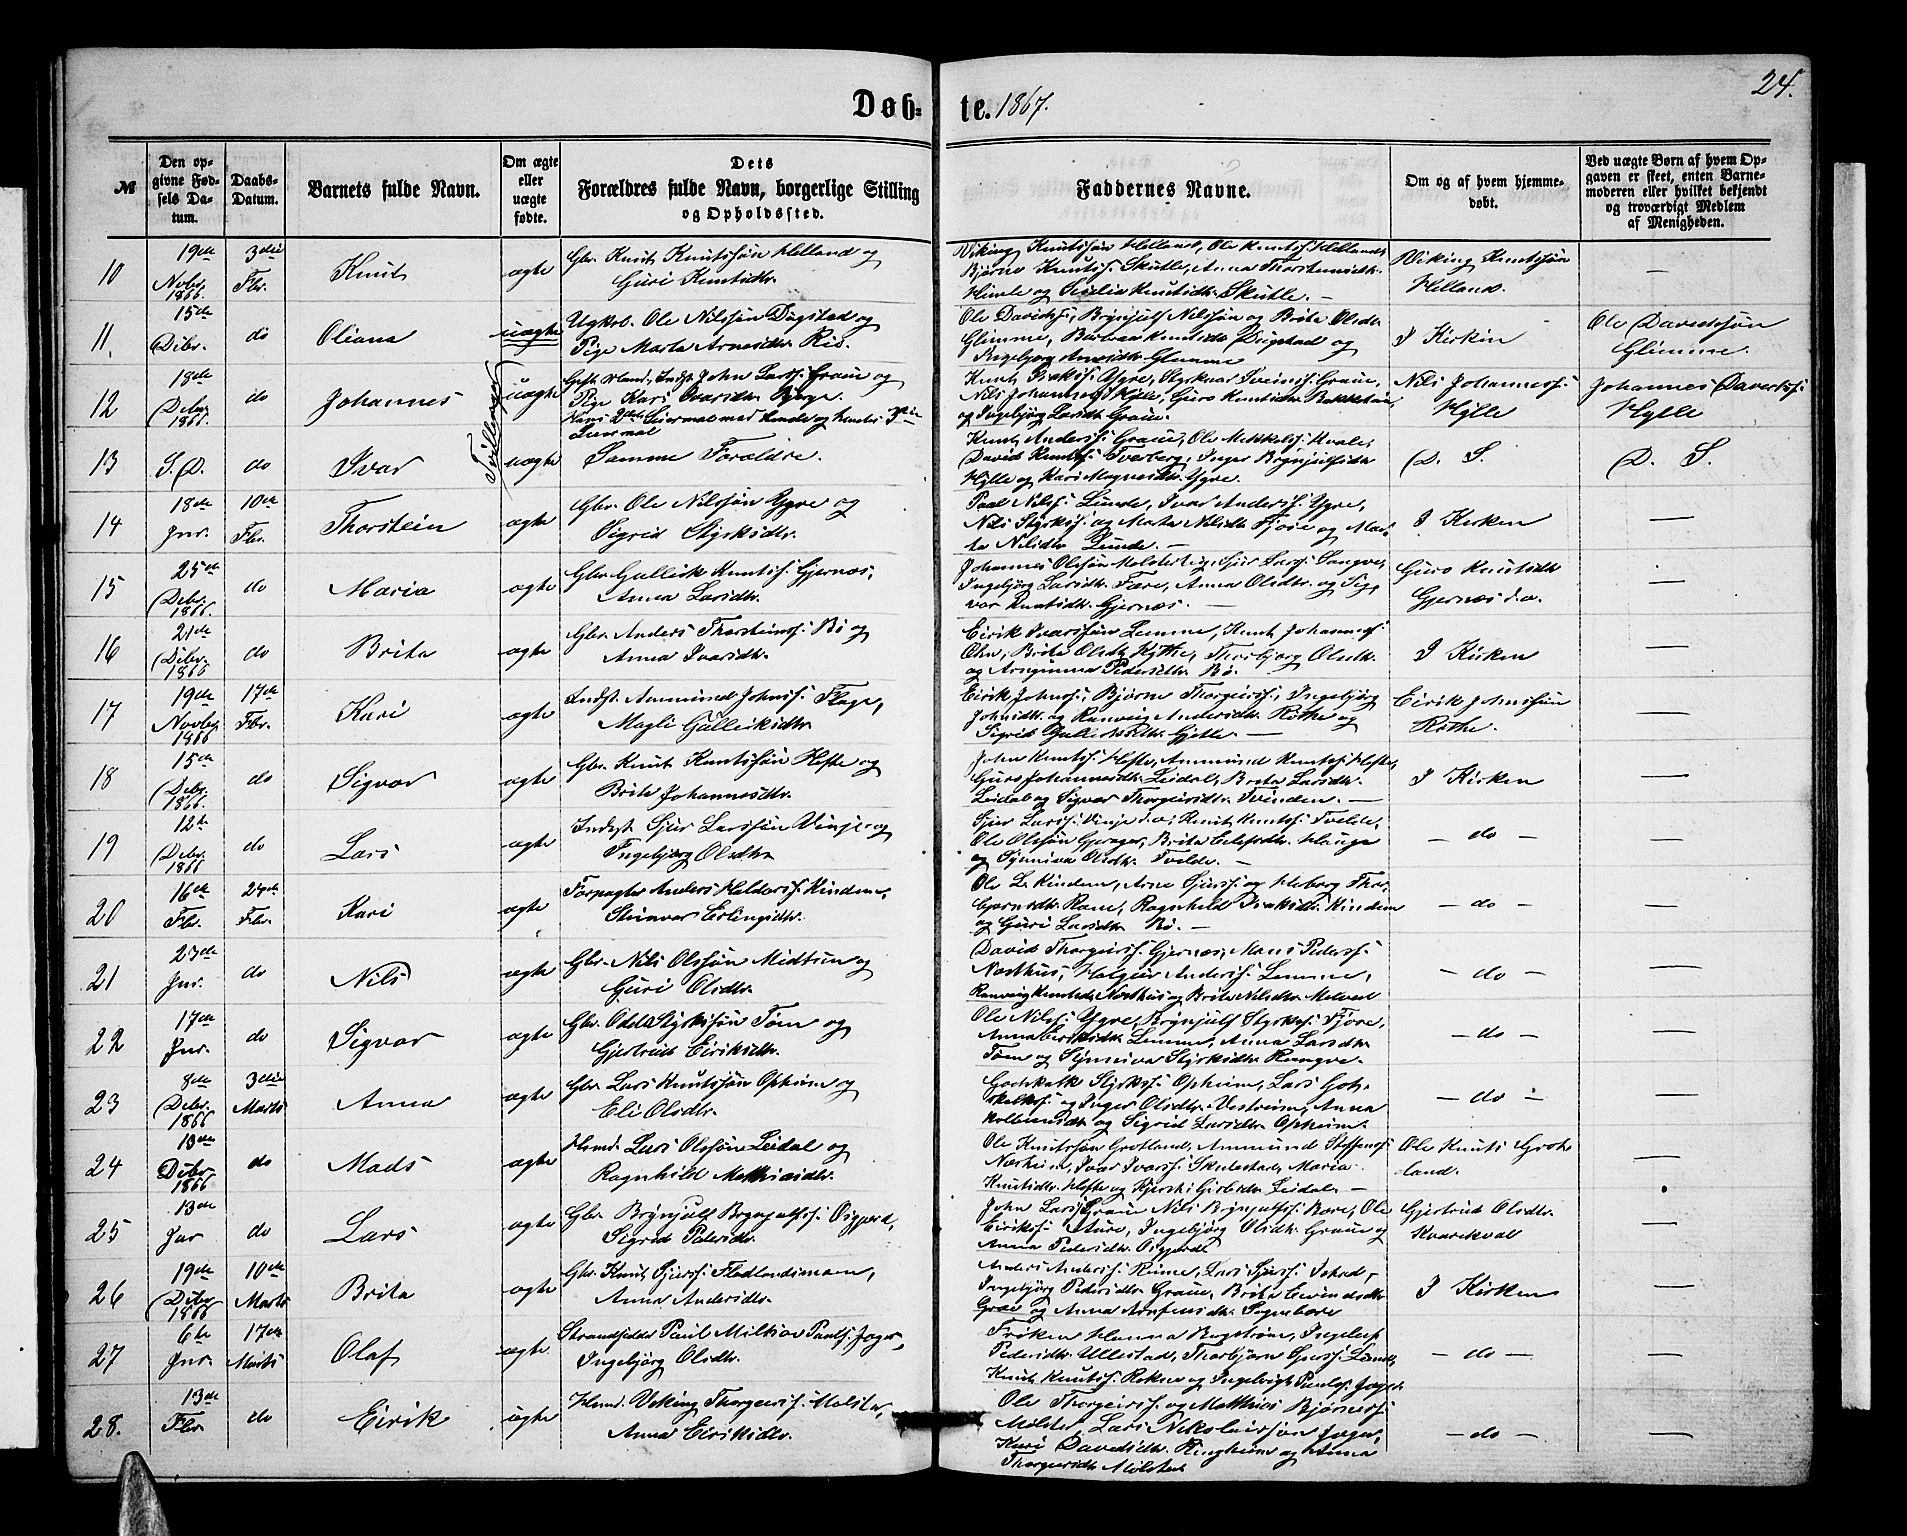 24.
Døb=
te. 1867.
№
Den op=
givne Fød=
sels Da=
tum.
Daabs=
Datum.
Barnets fulde Navn.
Om ægte
eller
uægte
fødte.
Dets
Forældres fulde Navn, borgerlige Stilling
og Opholdssted.
Faddernes Navne.
Om og af hvem hjemme=
døbt.
Ved uægte Børn af hvem Op=
gaven er skeet, enten Barne=
moderen eller hvilket bekjendt
og troværdigt Medlem
af Menigheden.
10
19de
Novbr.
1866.
3die
Fbr.
Knut
ægte
Gbr. Knut Knutssøn Helland og
Guri Knutsdtr.
Viking Knutssøn Helland, Ole Knutss. Helland,
Bjørne Knutss. Skutle, Anna Thorsteinsdtr.
Himle og Knutsdtr. Skutle. —
Viking Knutssøn
Helland.
—
11.
15de
Dcbr.
do
Oliana
uægte
Ugkrl. Ole Nilssøn Dugstad og
Pige Marta Arnesdtr. Rio.
Ole Davidss., Brynjulf Nilssøn og Brita Olsdtr.
Glimme, Barbraa Knutsdtr. Dugstad og
Ingebjørg Arnesdtr. Glimme
I Kirken
Ole Davidssøn
Glimme.
12
18de
Debr.
1866.
do
Johannes
Tvillinger
uægte
Gift Mand, Indst. John Larss. Graue og
Pige Kari Ivarsdtr. Bjørge.
Leiermaal
Knut Isakss. Ygre, Styrkaar Sveinss. Graue,
Nils Johanness. Hylle, Guro Knutsdtr. Bakketun,
og Ingebjørg Larsdtr. Graue.
Nils Johanness.
Hylle
Johannes Davidss.
Hylle
13
S. D.
do
Ivar
uægte
Samme Forældre.
Knut Anderss. Graue, Ole Mikkelss. Kvale,
David Knutss. Tverberg, Inger Brynjulfsdtr.
Hylle og Kari Magnesdtr. Ygre.
D. S.
D. S.
14
18de
Jnr.
10de
Fbr.
Thorstein
ægte
Gbr. Ole Nilssøn Ygre og
Sigrid Styrksdtr.
Paal Nilss. Lunde, Ivar Anderss. Ygre,
Nils Styrkss. og Marta Nilsdtr. Fjøre og Mar-
ta Nilsdtr. Lunde. —
I Kirken
—
15
25de
Debr.
1866.
do
Maria
ægte
Gbr. Gulleik Knutss. Gjernæs,
Anna Larsdtr.
Johannes Olssøn Mølsterteig, Sjur Larss. Sangve,
Ingebjørg Larsdtr. Fære, Anna Olsdtr. og Sig-
var Knutsdtr. Gjernæs. —
Guro Knutsdtr.
Gjernæs d. æ.
—
16
21de
Debr.
1866
do
Brita
ægte
Gbr. Anders Thorsteinss. Bø og
Anna Ivarsdtr.
Eirik Ivarssøn Lemme, Knut Johanness.
Brita Olsdtr. Kyte, Thorbjørg Olsdtr.
og Arngunna Pedersdtr. Bø.
I Kirken
—
17
19de
Novbr.
1866
17de
Fbr.
Kari
ægte
Indst. Ammund Johnss. Flage,
Magli Gulleiksdtr.
Eirik Johnss., Bjørne Thorgeirss., Ingebjørg
Johnsdtr. og Ranveig Andersdtr. Røthe og
Sigrid Gulleiksdtr. Gjelle. —
Eirik Johnssøn
Røthe.
—
18
15de
Debr.
1866.
do
Sigvor
ægte
Gbr. Knut Knutssøn Hefte og
Brita Johannesdtr.
John Knutss. Hefte, Ammund Knutss. Hefte,
Guro Johannesdtr. Leidal, Brita Larsdtr.
Leidal og Sigvor Thorgeirsdtr. Tvinden. —
I Kirken
—
19
12te
Debr.
1866
do
Lars
ægte
Indst. Sjur Larssøn Vinje og
Ingebjørg Olsdtr.
Sjur Larss. Vinje d. æ., Knut Knutss. Tvilde,
Ole Olssøn Gjerager, Brita Eilefsdtr. Hauge
og Synniva Olsdtr. Tvilde. —
— do —
—
20
16de
Fbr.
24de
Fbr.
Kari
ægte
Forpagter Anders Haldorss. Kindem,
Steinvor Erlingsdtr.
Ole L. Kindem, Arne Sjurss. og Heborg Thor-
bjørnsdtr. Rene, Ragnhild Isaksdtr. Kindem
og Guri Larsdtr. Bø. —
— do —
—
21
23de
Jnr.
do
Nils
ægte
Gbr. Nils Olssøn Midtun og
Guri Olsdtr.
David Thorgeirss. Gjernæs, Mons Pederss.
Northus, Holgier Anderss. Lemme,
Ranveig Knutsdtr. Northus og Brita Nilsdtr. Melvedt
— do —
—
22
17de
Jnr.
do
Sigvor
ægte
Gbr. Odd Styrkssøn Tøm og
Gjertrud Eiriksdtr.
Ole Nilss. Ygre, Brynjulf Styrkss. Fjøre,
Anna Eiriksdtr. Lemme, Anna Larsdtr.
Tøm og Synniva Styrksdtr. Rongve.
— do —
—
23
8de
Debr.
1866
3die
Marts
Anna
ægte
Gbr. Lars Knutssøn Opheim og
Eli Olsdtr.
Godskalk Styrkss. Opheim, Lars Got-
skalkss. og Inger Olsdtr. Vestrheim, Anna
Kolbeinsdtr. og Sigrid Larsdtr. Opheim.
— do —
—
24
13de
Debr.
1866
do
Mads
ægte
Hmd. Lars Olssøn Leidal og
Ragnhild Mathiasdtr.
Ole Knutssøn Grotland, Ammund Steffenss.
Nærheim, Ivar Ivarss. Skulestad, Maria
Knutsdtr. Hefte og Kjersti Leidal. —
Ole Knuts Grot-
land.
—
25
13de
Jnr
do
Lars
ægte
Gbr. Brynjulf Brynjulfss. Opgjerd,
Sigrid Pedersdtr.
John Larss. Graue Nils Brynjulfss. Bære, Ole
Eirikss. Sture, Ingebjørg Olsdtr. Graue og
Anna Pedersdtr. Opgjerdt
Gjertrud Olsdtr.
Kvarekval
—
26
19de
Debr
1866
10de
Marts
Brita
ægte
Gbr. Knut Sjurss. Fladlandsmoen,
Anna Andersdtr.
Anders Anderss. Rime, Lars Sjurss. Istad,
Ingebjørg Pedersdtr. Graue, Brita Eivindsdtr.
Graue og Anna Arnfinsdtr.
I Kirken
—
27
6te
Jnr.
17de
Marts
Olaf
ægte
Strandsidder Paul Miltior Paulss. Jæger,
Ingebjørg Olsdtr.
Frøken Hanna Bergstrøm, Ingeleif
Pedersdtr. Ullestad, Thorbjørn Sjurss. Lund,
Knut Knutss. Rokne og Ingeleif Paulss. Jæger
— do —
—
28.
13de
Fbr.
do
Eirik
ægte
Hmd. Viking Thorgeirss. Mølster,
Anna Eiriksdtr.
Ole Thorgeirss. og Matthias Bjørness.
Mølster, Lars Nikolaissøn Jæger,
Kari Davidsdtr. Ringheim og Anna
Thorgeirsdtr. Mølster
— do —
—